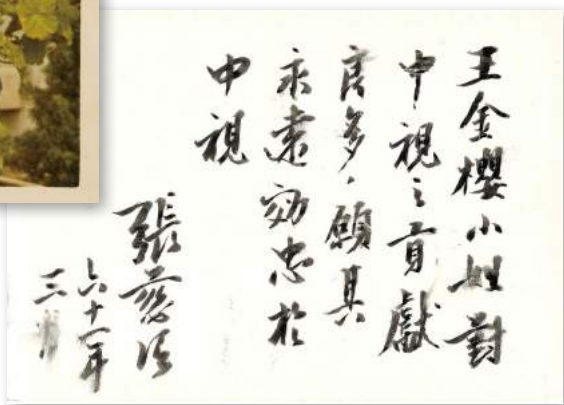 王金櫻小姐對
中視之貢獻
良多，願其
永遠効忠於
中視
張慈涵
六十一年
三月